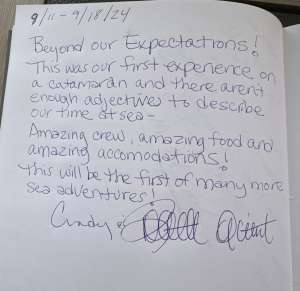 9/11 - 9/18/24
Beyond our Expectations!
This was our first experience on
a catamaran and there aren't
enough adjectives to describe
our time at sea -
Amazing crew, amazing food and
amazing accomodations!
This will be the first of many more
sea adventures!
Cindy &